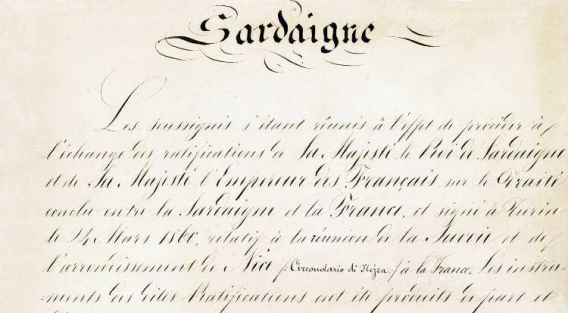 Sardaigne
Les soussignés s'étant réunis à l'effet de procéder à
l'échange des ratifications de Sa Majesté le Roi de Sardaigne
et de Sa Majesté l'Empereur des Français sur le Traité
conclu entre la Sardaigne et la France, et signé à Turin
le 24 Mars 1860, relatif à la réunion de la Savoie et de
l'arrondissement de Nice (Circondario di Nizza) à la France. Les instru-
-ments des dites Ratifications ont été produits de part et